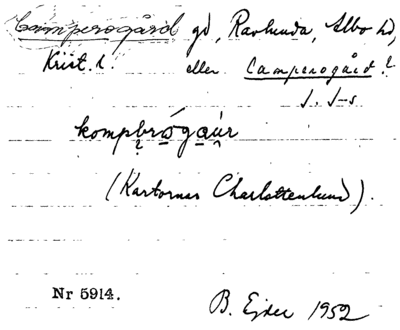 Camperogård gd, Ravlunda, Albo hd,
Krist. l. eller Camperogård?
J. J-s
(Kartornas Charlottenlund).
Nr 5914.
B. Ejder 1952